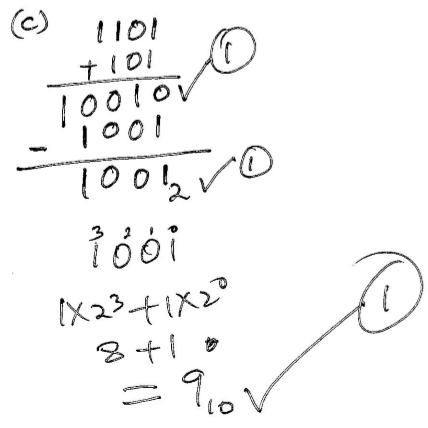 (c) 1101
+ 101
10010 ✓ 1
- 1001
1001₂ ✓ 1
3 2 1 0
1001
1×2³ + 1×2⁰
8 + 1
= 9₁₀ ✓ 1